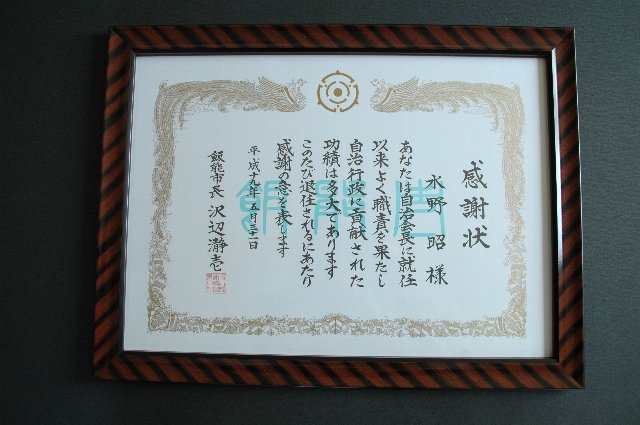 感謝状
水野 昭 様
あなたは自治会長に就任
以来よく職責を果たし
自治行政に貢献された
功績は多大であります
このたび退任されるにあたり
感謝の意を表します
平成十九年五月三十一日
飯能市長 沢辺瀞壱
飯能市